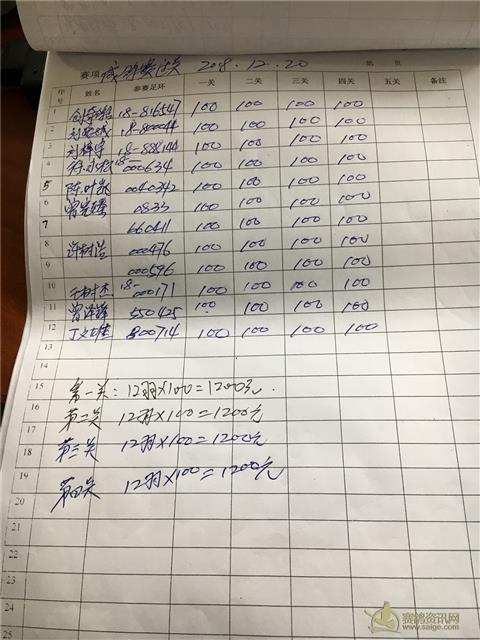 赛项 2018.12.20 第 页
序号 姓名 参赛足环 一关 二关 三关 四关 五关 备注
1 18-816547 100 100 100 100
2 18-800044 100 100 100 100
3 18-888144 100 100 100 100
4 18-000634 100 100 100 100
5 陈叶 0040342 100 100 100 100
6 曾 0833 100 100 100 100
7 660411 100 100 100 100
8 许树浩 000476 100 100 100 100
9 000596 100 100 100 100
10 树杰 18-000171 100 100 100 100
11 曾泽 550425 100 100 100 100
12 丁文雄 800714 100 100 100 100
13
14
15 第一关:12羽X100=1200元.
16 第二关 12羽X100=1200元
17
18 第三关 12羽X100=1200元
19 第四关 12羽X100=1200元
20
21
22
23
24
25
赛鸽资讯网
www.saige.com